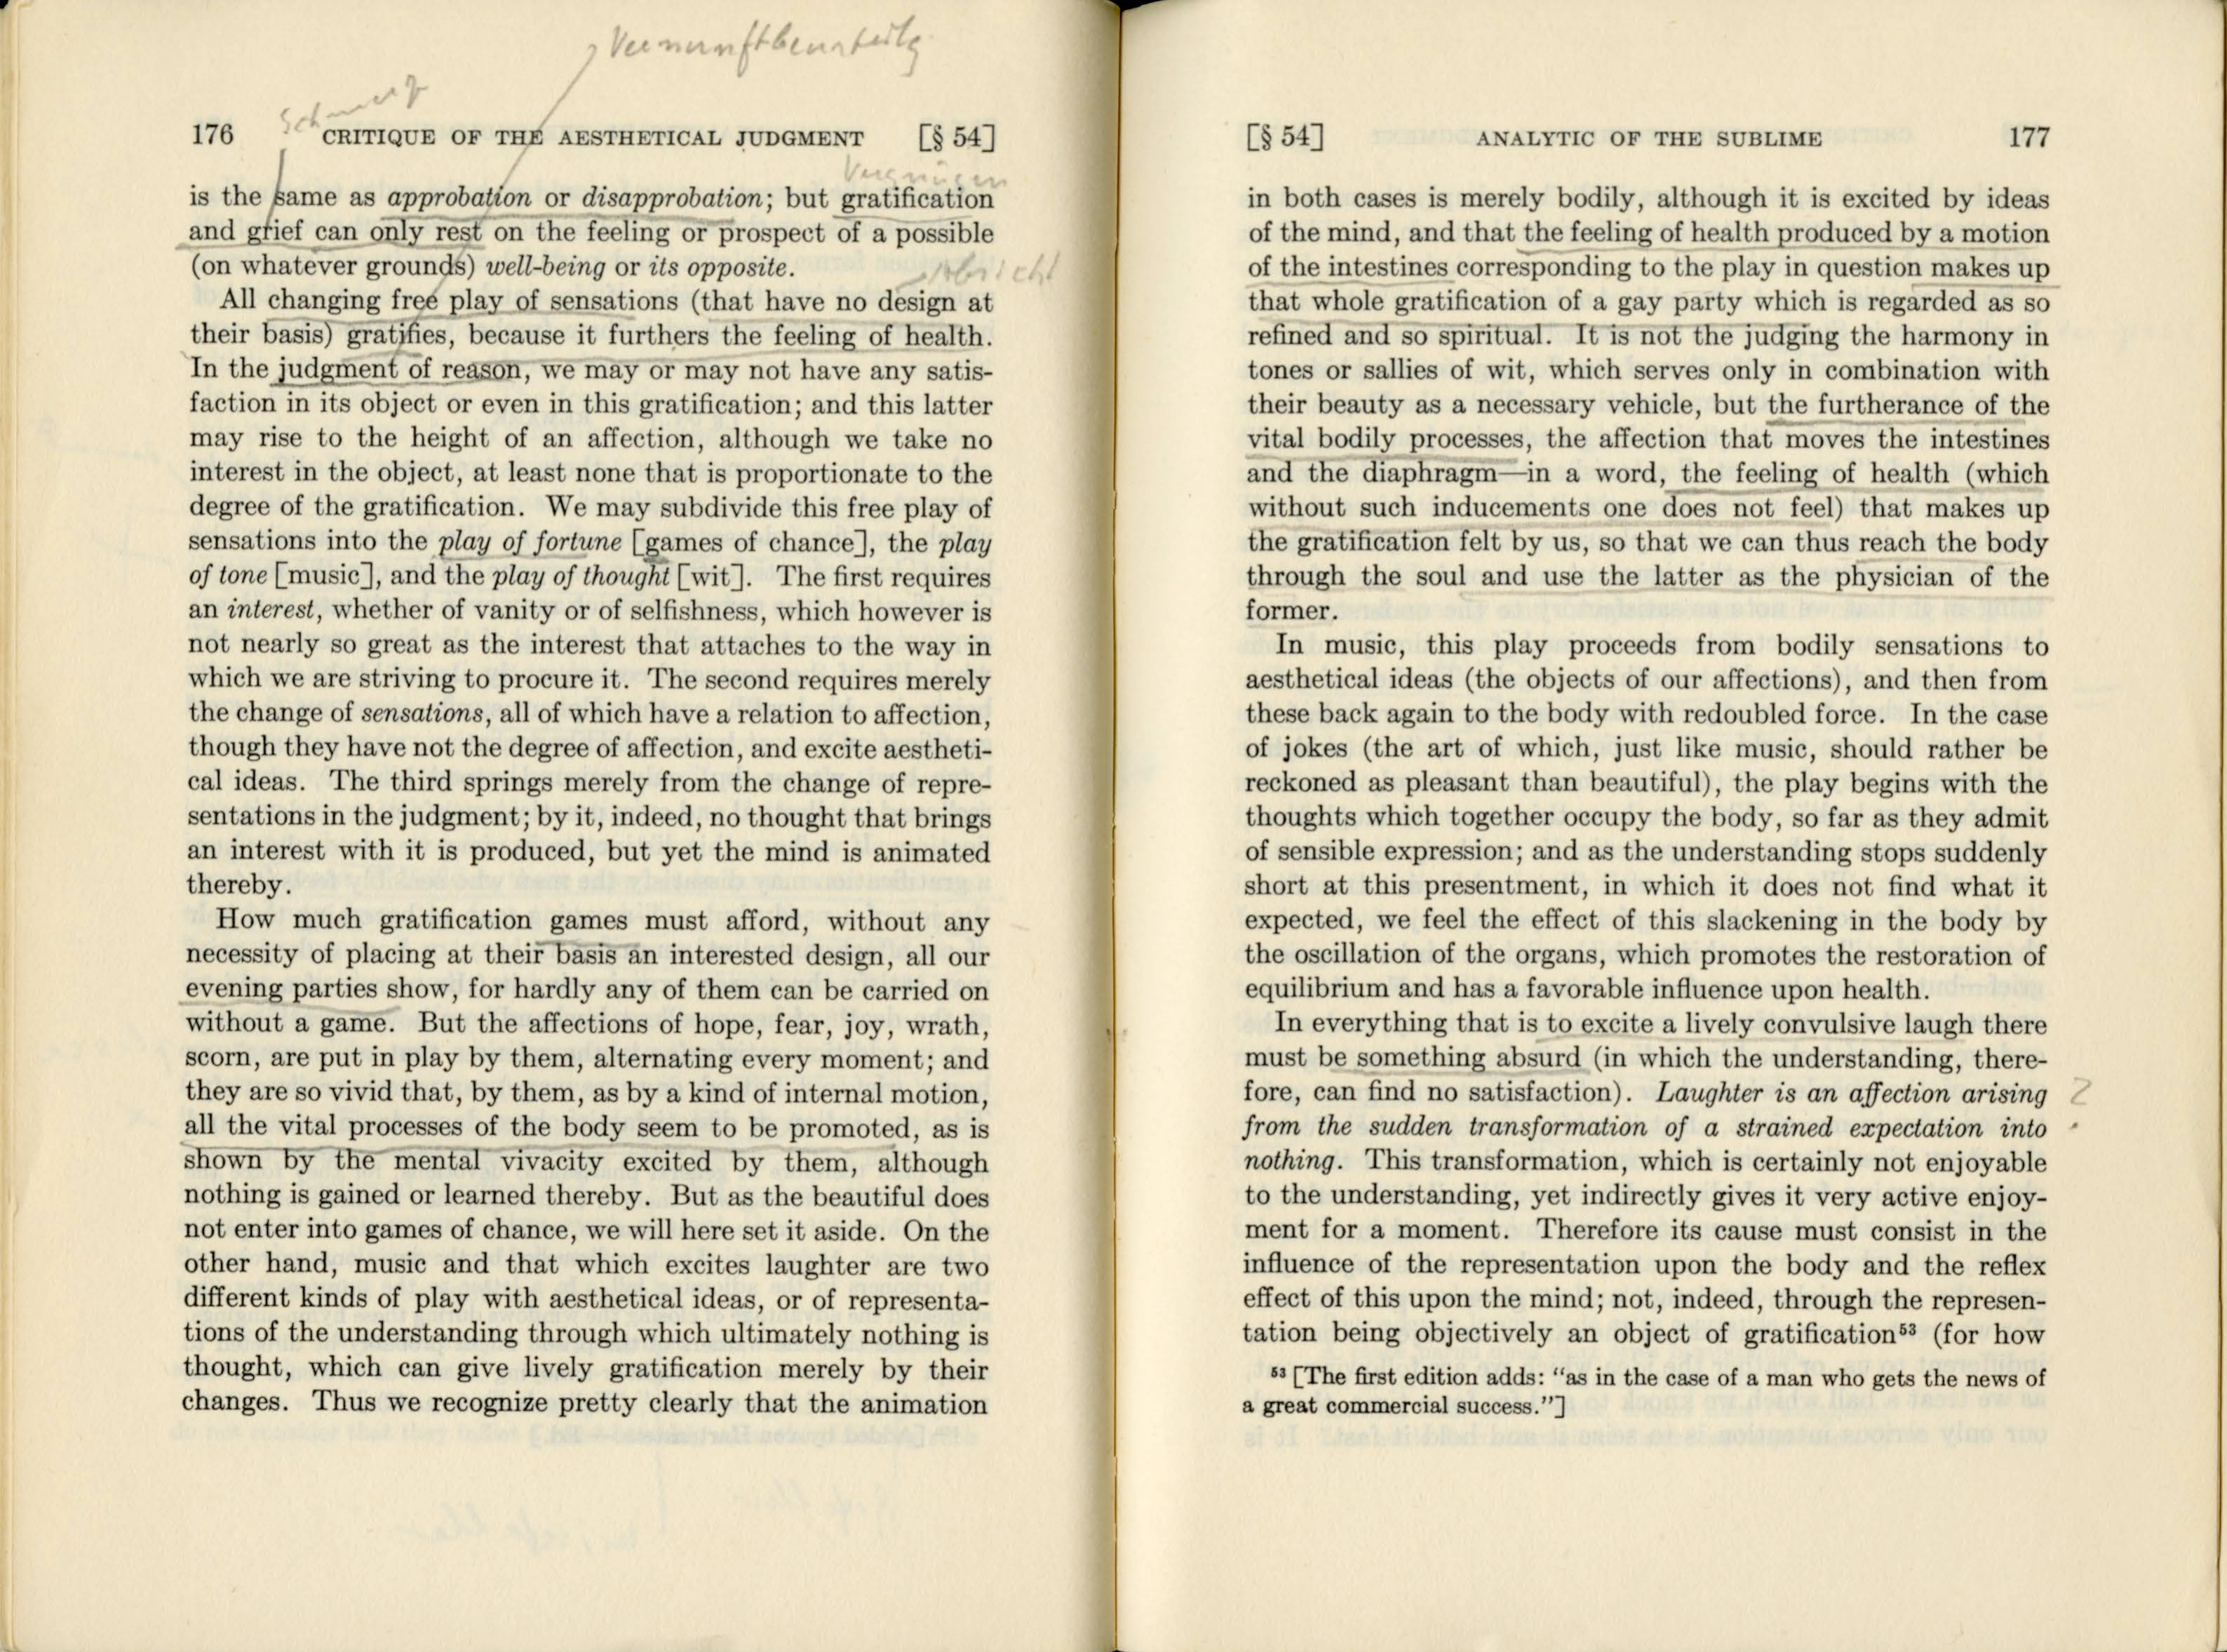 Vernunftbeurteilg
Schmerz
176 CRITIQUE OF THE AESTHETICAL JUDGMENT [§ 54]
Vergnügen
is the same as approbation or disapprobation; but gratification
and grief can only rest on the feeling or prospect of a possible
(on whatever grounds) well-being or its opposite.
Absicht
All changing free play of sensations (that have no design at
their basis) gratifies, because it furthers the feeling of health.
In the judgment of reason, we may or may not have any satis-
faction in its object or even in this gratification; and this latter
may rise to the height of an affection, although we take no
interest in the object, at least none that is proportionate to the
degree of the gratification. We may subdivide this free play of
sensations into the play of fortune [games of chance], the play
of tone [music], and the play of thought [wit]. The first requires
an interest, whether of vanity or of selfishness, which however is
not nearly so great as the interest that attaches to the way in
which we are striving to procure it. The second requires merely
the change of sensations, all of which have a relation to affection,
though they have not the degree of affection, and excite aestheti-
cal ideas. The third springs merely from the change of repre-
sentations in the judgment; by it, indeed, no thought that brings
an interest with it is produced, but yet the mind is animated
thereby.
How much gratification games must afford, without any
necessity of placing at their basis an interested design, all our
evening parties show, for hardly any of them can be carried on
without a game. But the affections of hope, fear, joy, wrath,
scorn, are put in play by them, alternating every moment; and
they are so vivid that, by them, as by a kind of internal motion,
all the vital processes of the body seem to be promoted, as is
shown by the mental vivacity excited by them, although
nothing is gained or learned thereby. But as the beautiful does
not enter into games of chance, we will here set it aside. On the
other hand, music and that which excites laughter are two
different kinds of play with aesthetical ideas, or of representa-
tions of the understanding through which ultimately nothing is
thought, which can give lively gratification merely by their
changes. Thus we recognize pretty clearly that the animation
[§ 54] ANALYTIC OF THE SUBLIME 177
in both cases is merely bodily, although it is excited by ideas
of the mind, and that the feeling of health produced by a motion
of the intestines corresponding to the play in question makes up
that whole gratification of a gay party which is regarded as so
refined and so spiritual. It is not the judging the harmony in
tones or sallies of wit, which serves only in combination with
their beauty as a necessary vehicle, but the furtherance of the
vital bodily processes, the affection that moves the intestines
and the diaphragm—in a word, the feeling of health (which
without such inducements one does not feel) that makes up
the gratification felt by us, so that we can thus reach the body
through the soul and use the latter as the physician of the
former.
In music, this play proceeds from bodily sensations to
aesthetical ideas (the objects of our affections), and then from
these back again to the body with redoubled force. In the case
of jokes (the art of which, just like music, should rather be
reckoned as pleasant than beautiful), the play begins with the
thoughts which together occupy the body, so far as they admit
of sensible expression; and as the understanding stops suddenly
short at this presentment, in which it does not find what it
expected, we feel the effect of this slackening in the body by
the oscillation of the organs, which promotes the restoration of
equilibrium and has a favorable influence upon health.
In everything that is to excite a lively convulsive laugh there
must be something absurd (in which the understanding, there-
fore, can find no satisfaction). Laughter is an affection arising
from the sudden transformation of a strained expectation into
nothing. This transformation, which is certainly not enjoyable
to the understanding, yet indirectly gives it very active enjoy-
ment for a moment. Therefore its cause must consist in the
influence of the representation upon the body and the reflex
effect of this upon the mind; not, indeed, through the represen-
tation being objectively an object of gratification⁵³ (for how
⁵³ [The first edition adds: “as in the case of a man who gets the news of
a great commercial success.”]